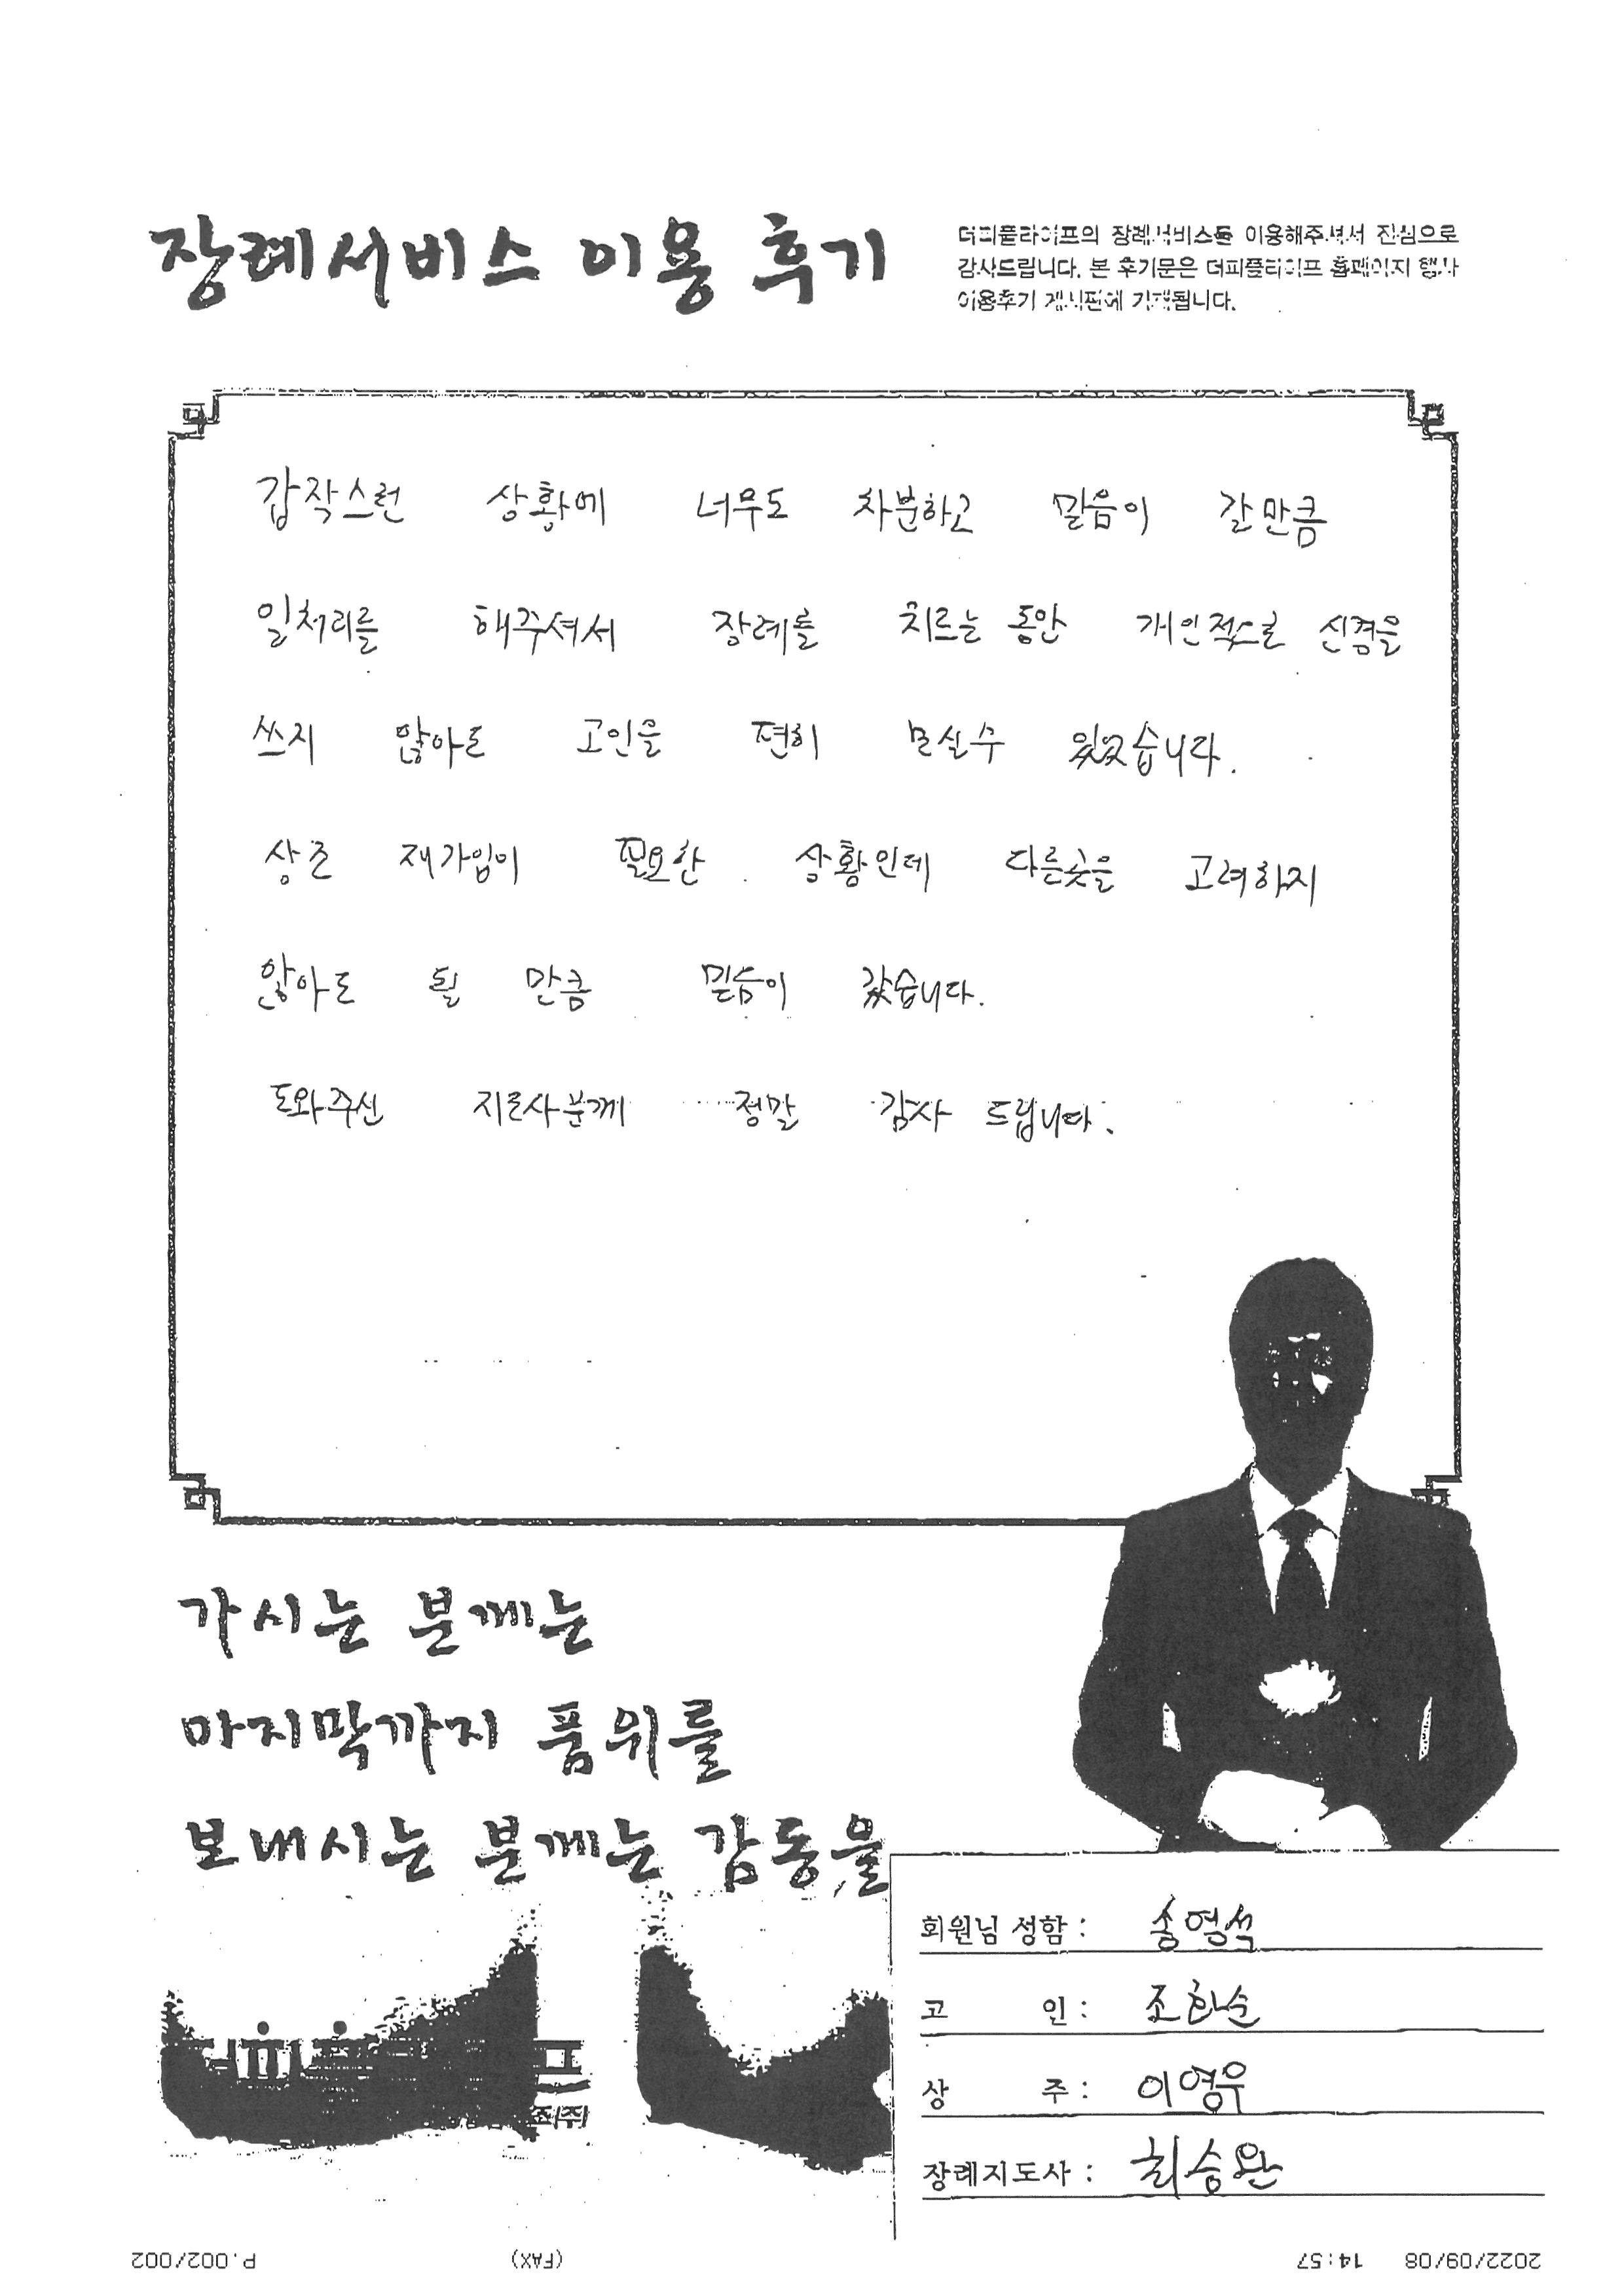 장례서비스 이용 후기
더피플라이프의 장례서비스를 이용해주셔서 진심으로
감사드립니다. 본 후기문은 더피플라이프 홈페이지 행사
이용후기 게시판에 기재됩니다.
갑작스런 상황에 너무도 차분하고 믿음이 갈만큼
일처리를 해주셔서 장례를 치르는 동안 개인적으로 신경을
쓰지 않아도 고인을 편히 모실수 있었습니다.
상조 재가입이 필요한 상황인데 다른곳을 고려하지
않아도 될 만큼 믿음이 갔습니다.
도와주신 지도사분께 정말 감사 드립니다.
가시는 분께는
마지막까지 품위를
보내시는 분께는 감동을
회원님 성함 : 송영석
고 인 : 조한순
상 주 : 이영우
장례지도사 : 최승완
2022/09/08 14:57 (FAX) P.002/002